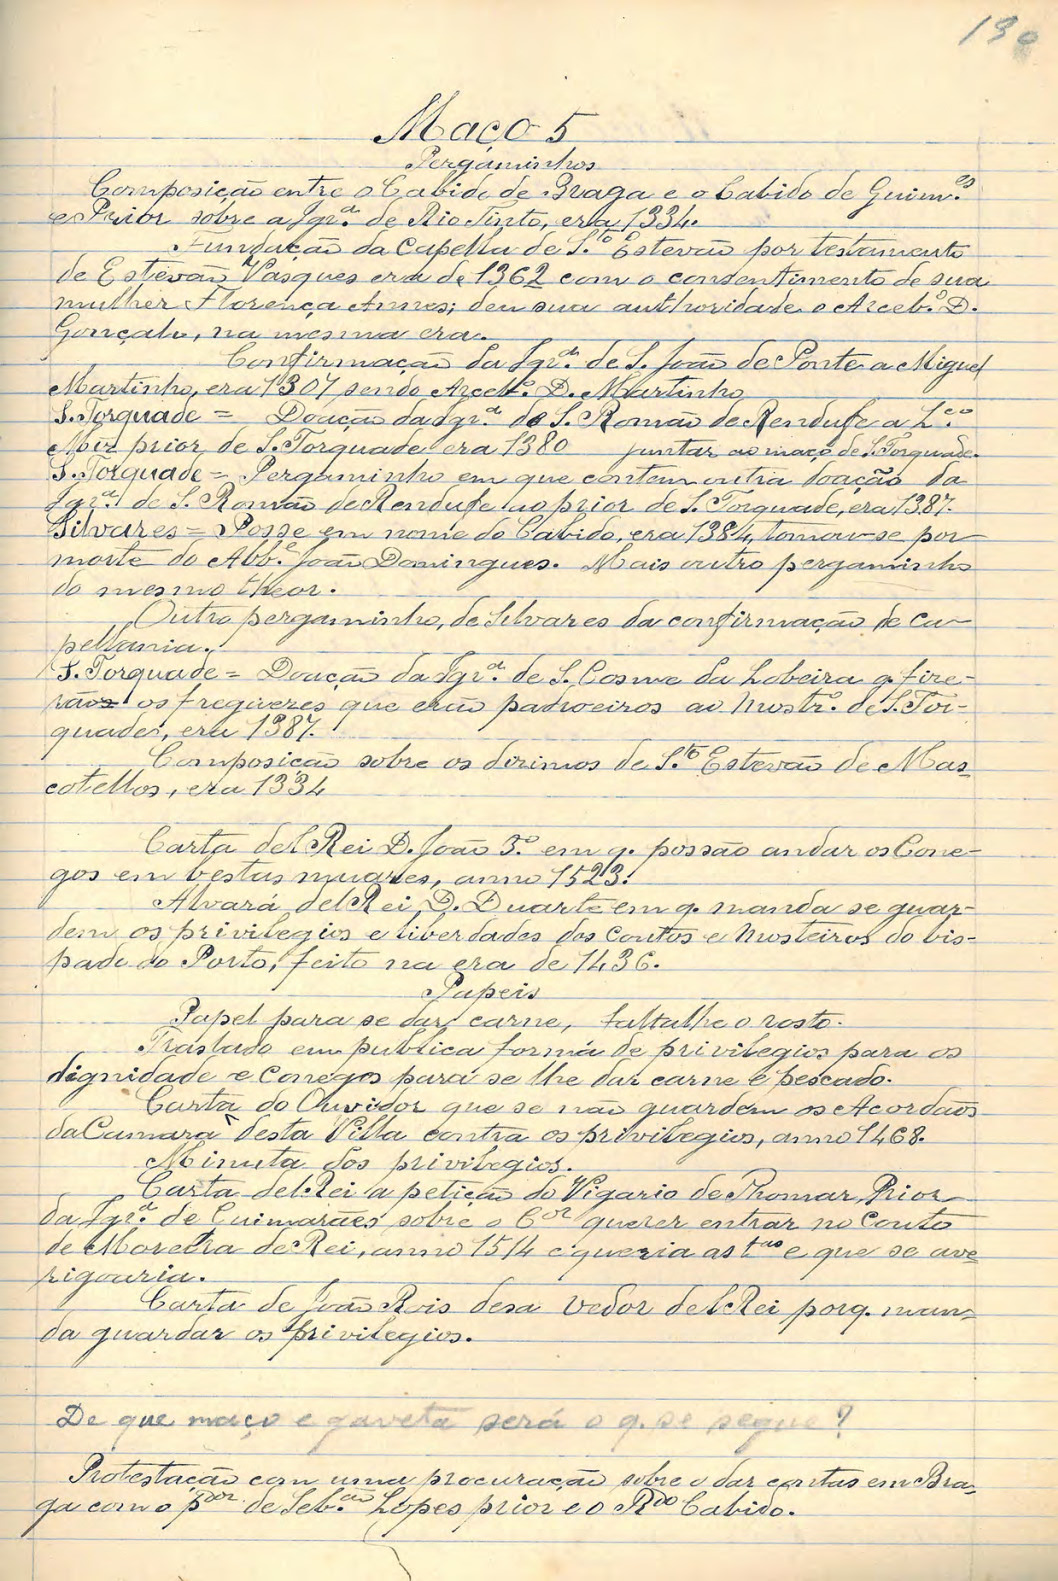 130
Maço 5
Pergaminhos
Composição entre o Cabido de Braga e o Cabido de Guim.es
e Prior sobre a Igr.a de Rio Tinto, era 1334.
Fundação da Capella de S.to Estevão por testamento
de Estevão Vasques era de 1362 com o consentimento de sua
mulher Florença Annes; deu sua authoridade o Arceb.o D.
Gonçalo, na mesma era.
Confirmação da Igr.a de S. João de Ponte a Miguel
Martinho, era 1307 sendo Arceb.o D. Martinho
S. Torquade = Doação da Igr.a de S. Romão de Rendufe a L.co
Miz prior de S. Torquade era 1380 juntar ao maço de S. Torquade.
S. Torquade = Pergaminho em que contem outra doação da
Igr.a de S. Romão de Rendufe ao prior de S. Torquade, era 1387.
Silvares = Posse em nome do Cabido, era 1384, tomou-se por
morte do Abb.e João Domingues. Mais outro pergaminho
do mesmo theor.
Outro pergaminho, de Silvares da confirmação de ca-
pellania.
S. Torquade = Doação da Igr.a de S. Cosme da Lobeira q. fize-
rão os freguezes que erão padroeiros ao Mostr.o de S. Tor-
quade, era 1387.
Composição sobre os dizimos de S.to Estevão de Mas-
cotellos, era 1334
Carta del Rei D. João 3.o em q. possão andar os Cone-
gos em bestas muares, anno 1523.
Alvará del Rei D. Duarte em q. manda se guar-
dem os privilegios e liverdades dos Coutos e Mosteiros do bis-
pado do Porto, feito na era de 1436.
Papeis
Papel para se dar carne, faltalhe o rosto.
Traslado em publica forma de privilegios para os
dignidade e Conegos para se lhe dar carne e pescado.
Carta do Ouvidor que se não guardem os Acordãos
da Camara desta Villa contra os privilegios, anno 1468.
Minuta dos privilegios.
Carta del Rei a petição do Vigario de Thomar Prior
da Igr.a de Guimarães sobre o C.or querer entrar no Couto
de Moreira de Rei, anno 1514 e queria as t.as e que se ave
rigoaria.
Carta de João Rois desa vedor del Rei porq. man-
da guardar os privilegios.
De que maço e gaveta será o q. se segue?
Protestação com uma procuração sobre o dar contas em Bra-
ga com o p.dor de Seb.am Lopes prior e o R.do Cabido.